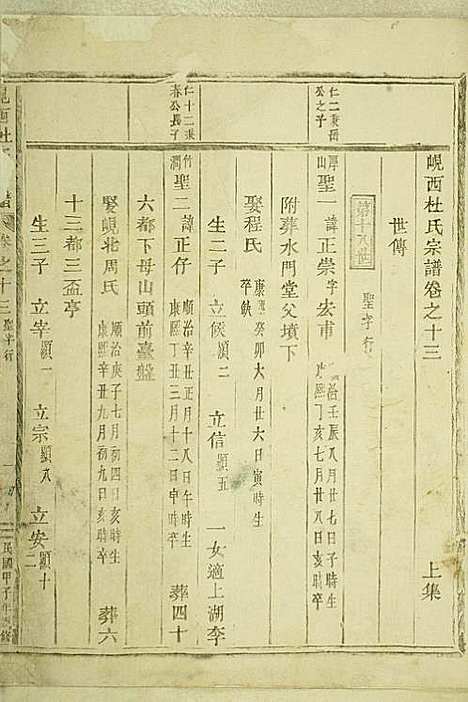 峴西杜氏宗譜卷之十三 上集
世傳
第十八世 聖字行
仁二秉
公之子
厚山 聖一 諱正崇字宏甫 順治壬辰八月廿七日子時生
康熙丁亥七月廿八日亥時卒
附葬水門堂父墳下
娶程氏 康熙癸卯六月廿六日寅時生
卒缺
生二子 立候顯二 立信顯五 一女適上湖李
仁十二秉
春公長子
竹澗 聖二 諱正仔 順治辛丑正月十八日午時生
康熙丁丑三月十二日申時卒 葬四十
六都下母山頭前臺盤
娶峴北周氏 順治庚子七月初四日亥時生
康熙辛丑九月初九日亥時卒 葬六
十三都三盃亭
生三子 立宰顯一 立宗顯八 立安顯十二
峴西杜氏宗譜 卷之十三 聖字行 一 民國甲子年修